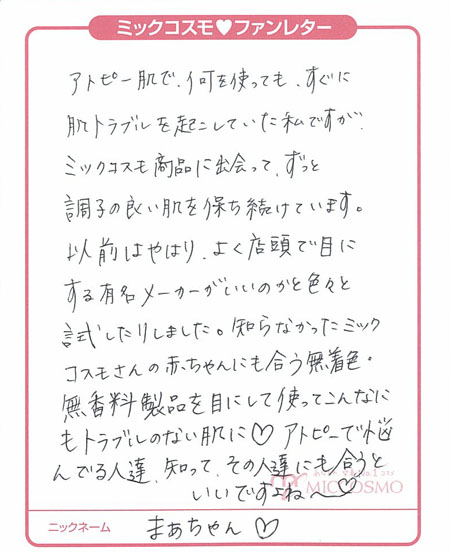 ミックコスモ♥ファンレター
アトピー肌で、何を使っても、すぐに
肌トラブルを起こしていた私ですが、
ミックコスモ商品に出会って、ずっと
調子の良い肌を保ち続けています。
以前はやはり、よく店頭で目に
する有名メーカーがいいのかと色々と
試したりしました。知らなかったミック
コスモさんの赤ちゃんにも合う無着色・
無香料製品を目にして使ってこんなに
もトラブルのない肌に♡ アトピーで悩
んでる人達、知って、その人達にも合うと
いいですよね〜♡
MICCOSMO
ニックネーム まぁちゃん♡